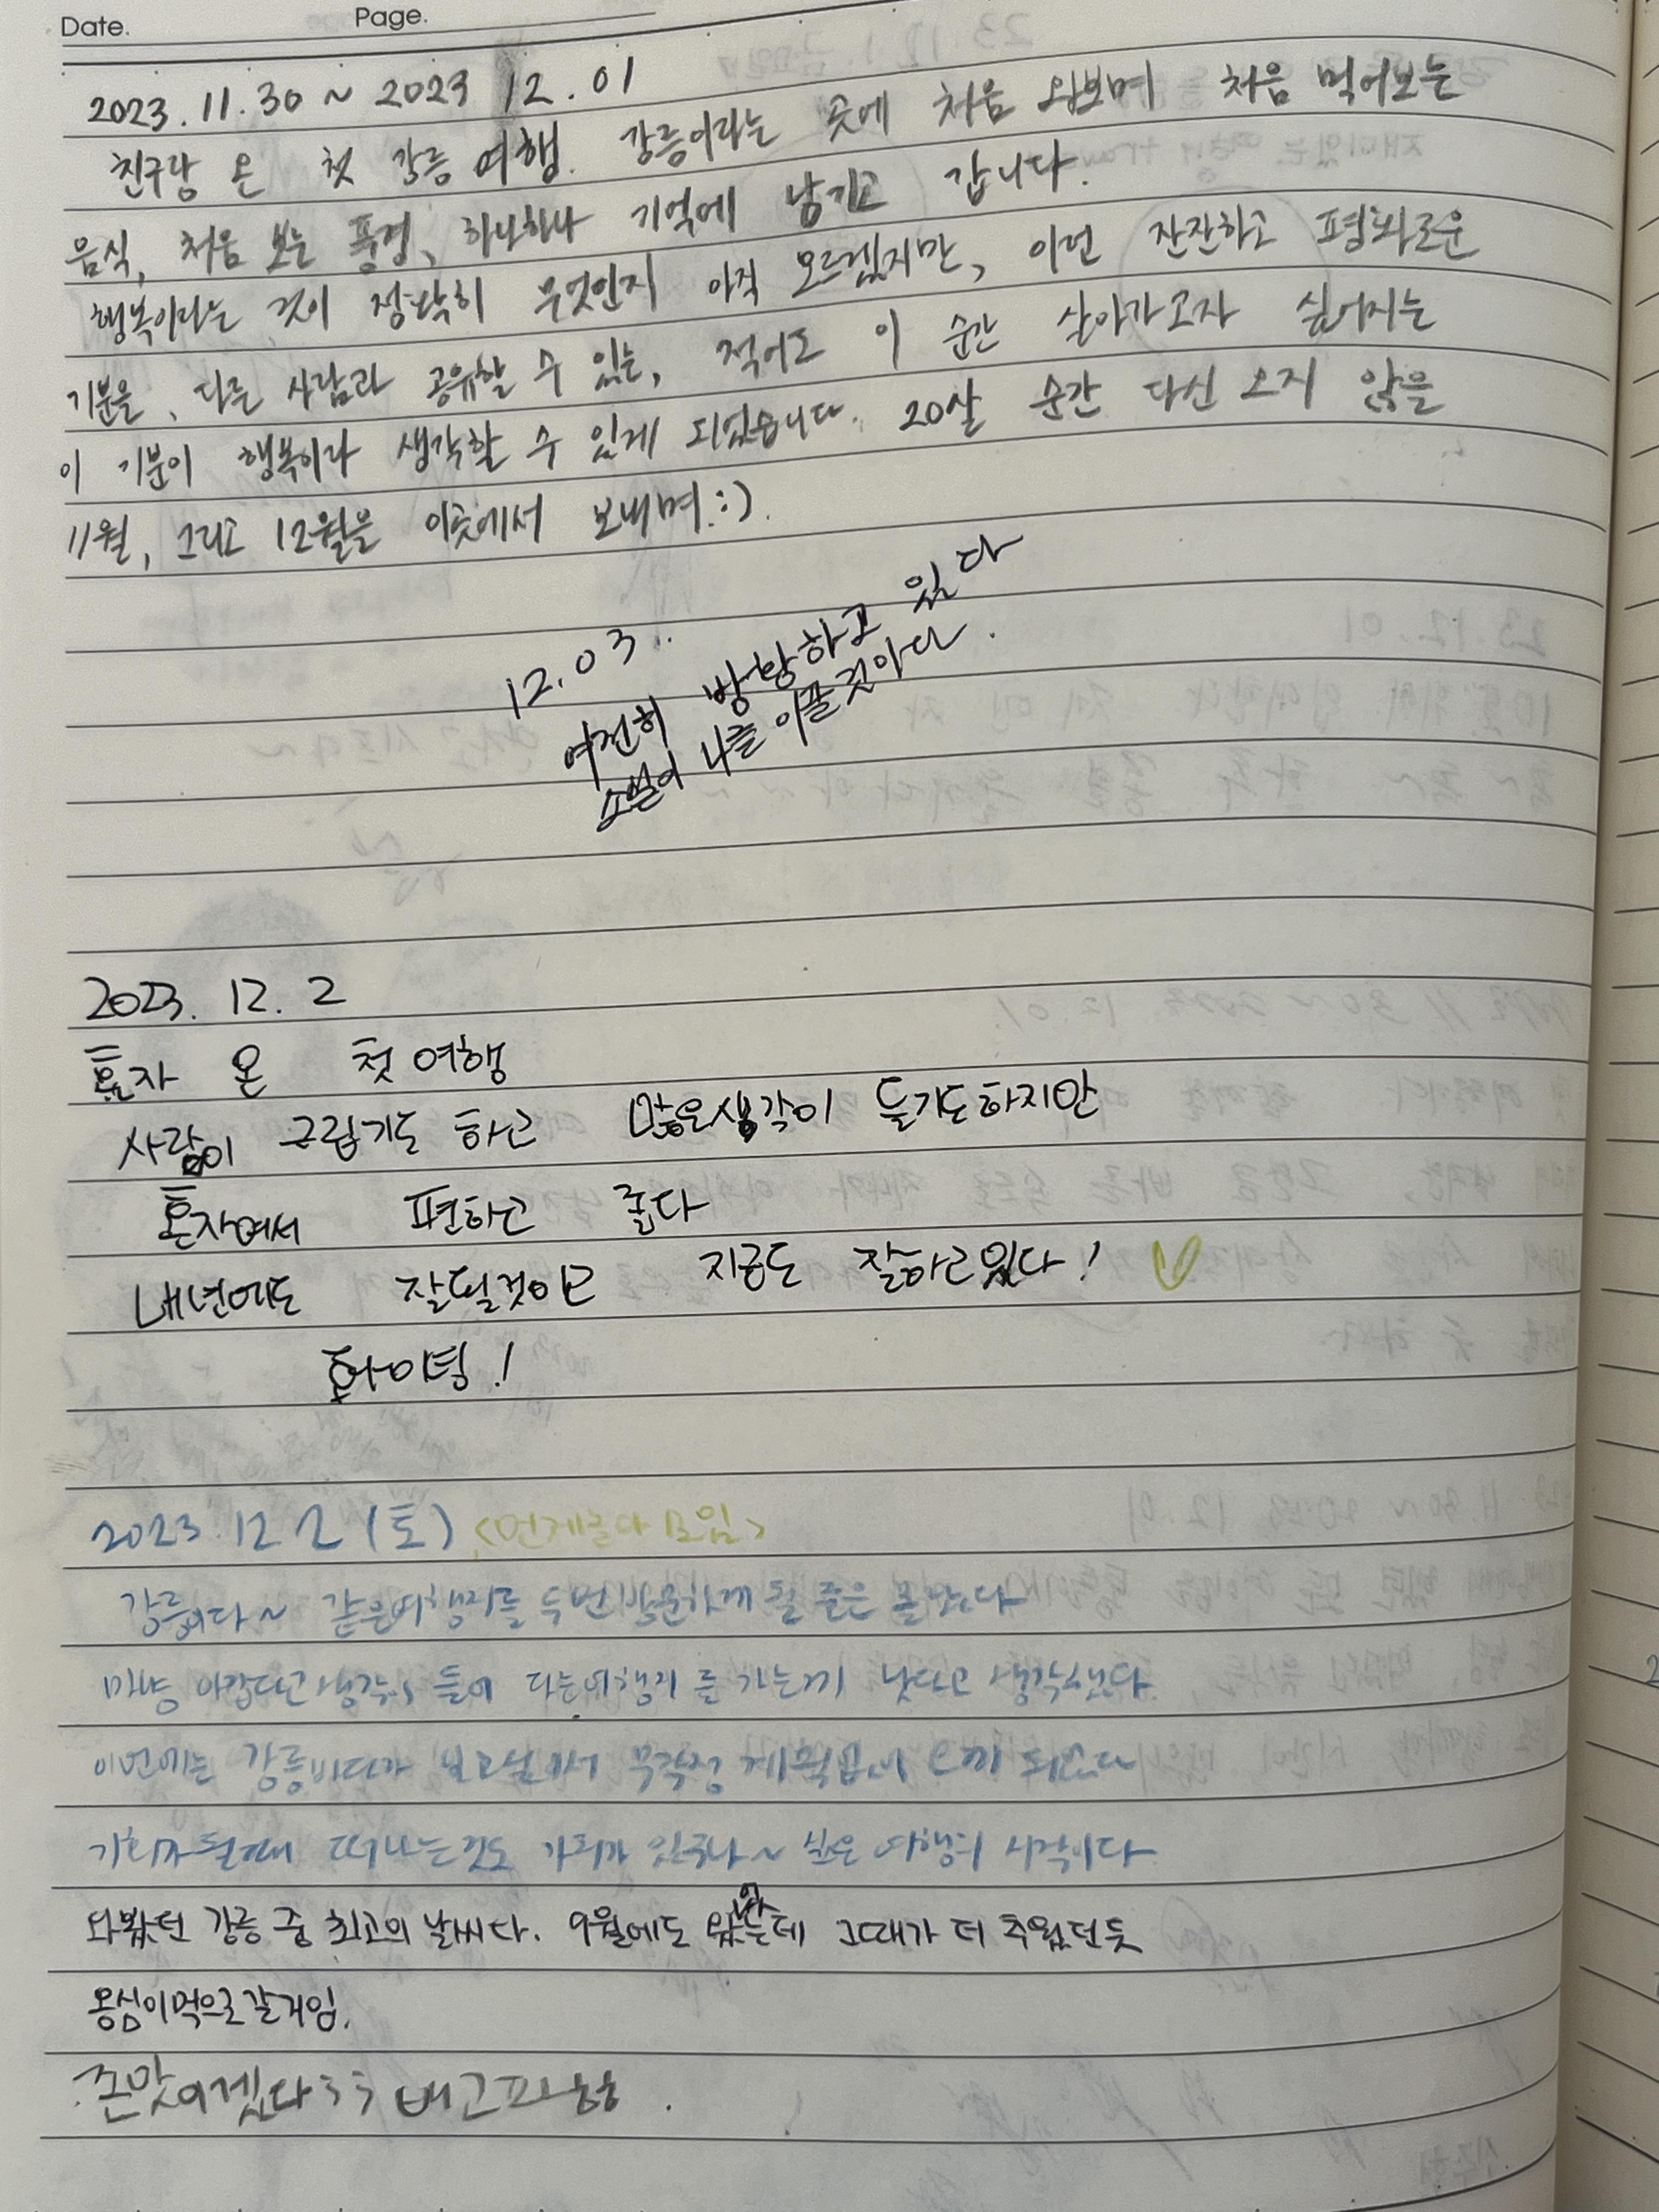 Date. Page.
2023. 11. 30 ~ 2023 12. 01
친구랑 온 첫 강릉 여행. 강릉이라는 곳에 처음 와보며 처음 먹어보는
음식, 처음 보는 풍경, 하나하나 기억에 남기고 갑니다.
행복이라는 것이 정확히 무엇인지 아직 모르겠지만, 이런 잔잔하고 평화로운
기분을, 다른 사람과 공유할 수 있는, 적어도 이 순간 살아가고자 싶어지는
이 기분이 행복이라 생각할 수 있게 되었습니다. 20살 순간 다신 오지 않을
11월, 그리고 12월을 이곳에서 보내며 :).
12. 03.
여전히 방황하고 있다
소설이 나를 이끌것이다.
2023. 12. 2
혼자 온 첫 여행
사람이 그립기도 하고 많은생각이 들기도하지만
혼자여서 편하고 좋다
내년에도 잘될것이고 지금도 잘하고있다!
화이팅!
2023. 12 2 (토) <언제 모임>
강릉이다~ 같은여행지를 두번 방문하게 될 줄은 몰랐다
아깝다고 생각 들어 다른여행지를 가는게 낫다고 생각했다
이번에는 강릉바다가 보고싶어서 무작정 계획없이 오게 되었다
떠나는것도 가치가 있구나~ 여행의 시작이다
와봤던 강릉 중 최고의 날씨다. 9월에도 왔었는데 그때가 더 추웠던듯
옹심이먹으로갈거임.
존맛이겠다ㅎㅎ 배고파용용.